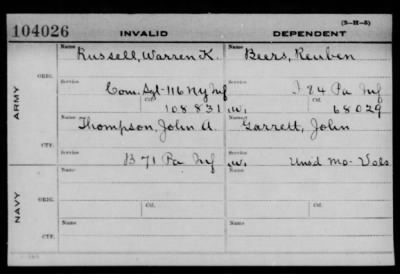 (3-H-5)
104026 INVALID DEPENDENT
Name Name
Russell, Warren K. Beers, Reuben
ORIG. Service Service
Com. Sgt-116 NY Inf I 84 Pa Inf
Ctf. 108831 W. Ctf. 68029
ARMY
Name Name
Thompson, John A. Garrett, John
CTF. Service Service
B 71 Pa Inf W. Unsd Mo. Vols
Name Name
ORIG.
Service Ctf. Service Ctf.
NAVY
Name Name
CTF.
Service Service